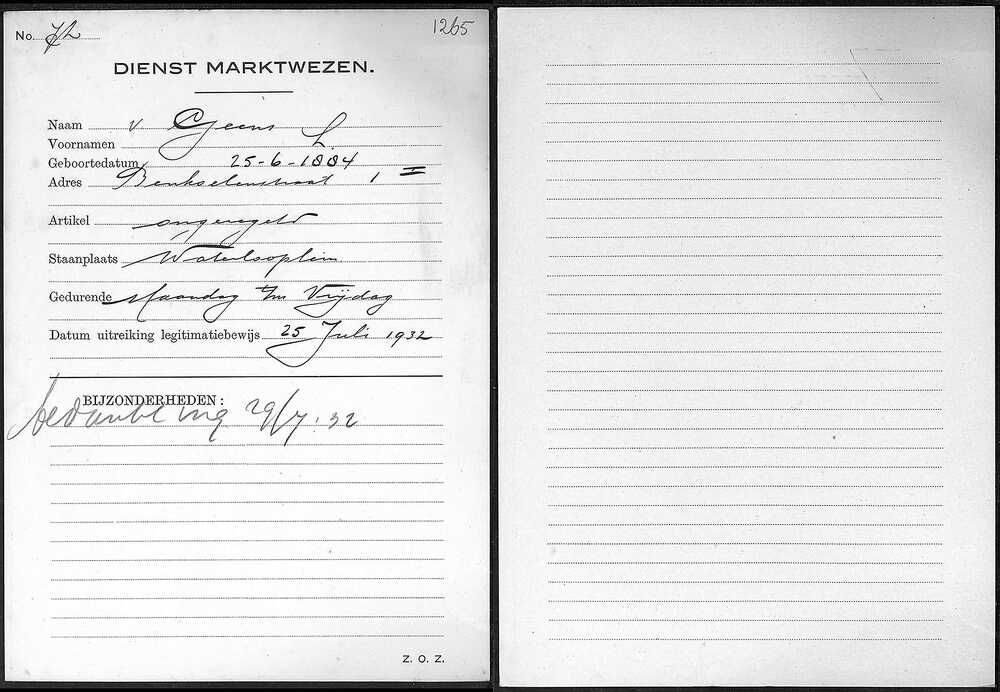 No. 72
1265
DIENST MARKTWEZEN.
Naam v. Geens
Voornamen L.
Geboortedatum 25-6-1884
Adres 1 II
Artikel ongeregeld
Staanplaats Waterlooplein
Gedurende Maandag t/m Vrijdag
Datum uitreiking legitimatiebewijs 25 Juli 1932
BIJZONDERHEDEN:
29/7.32
Z. O. Z.